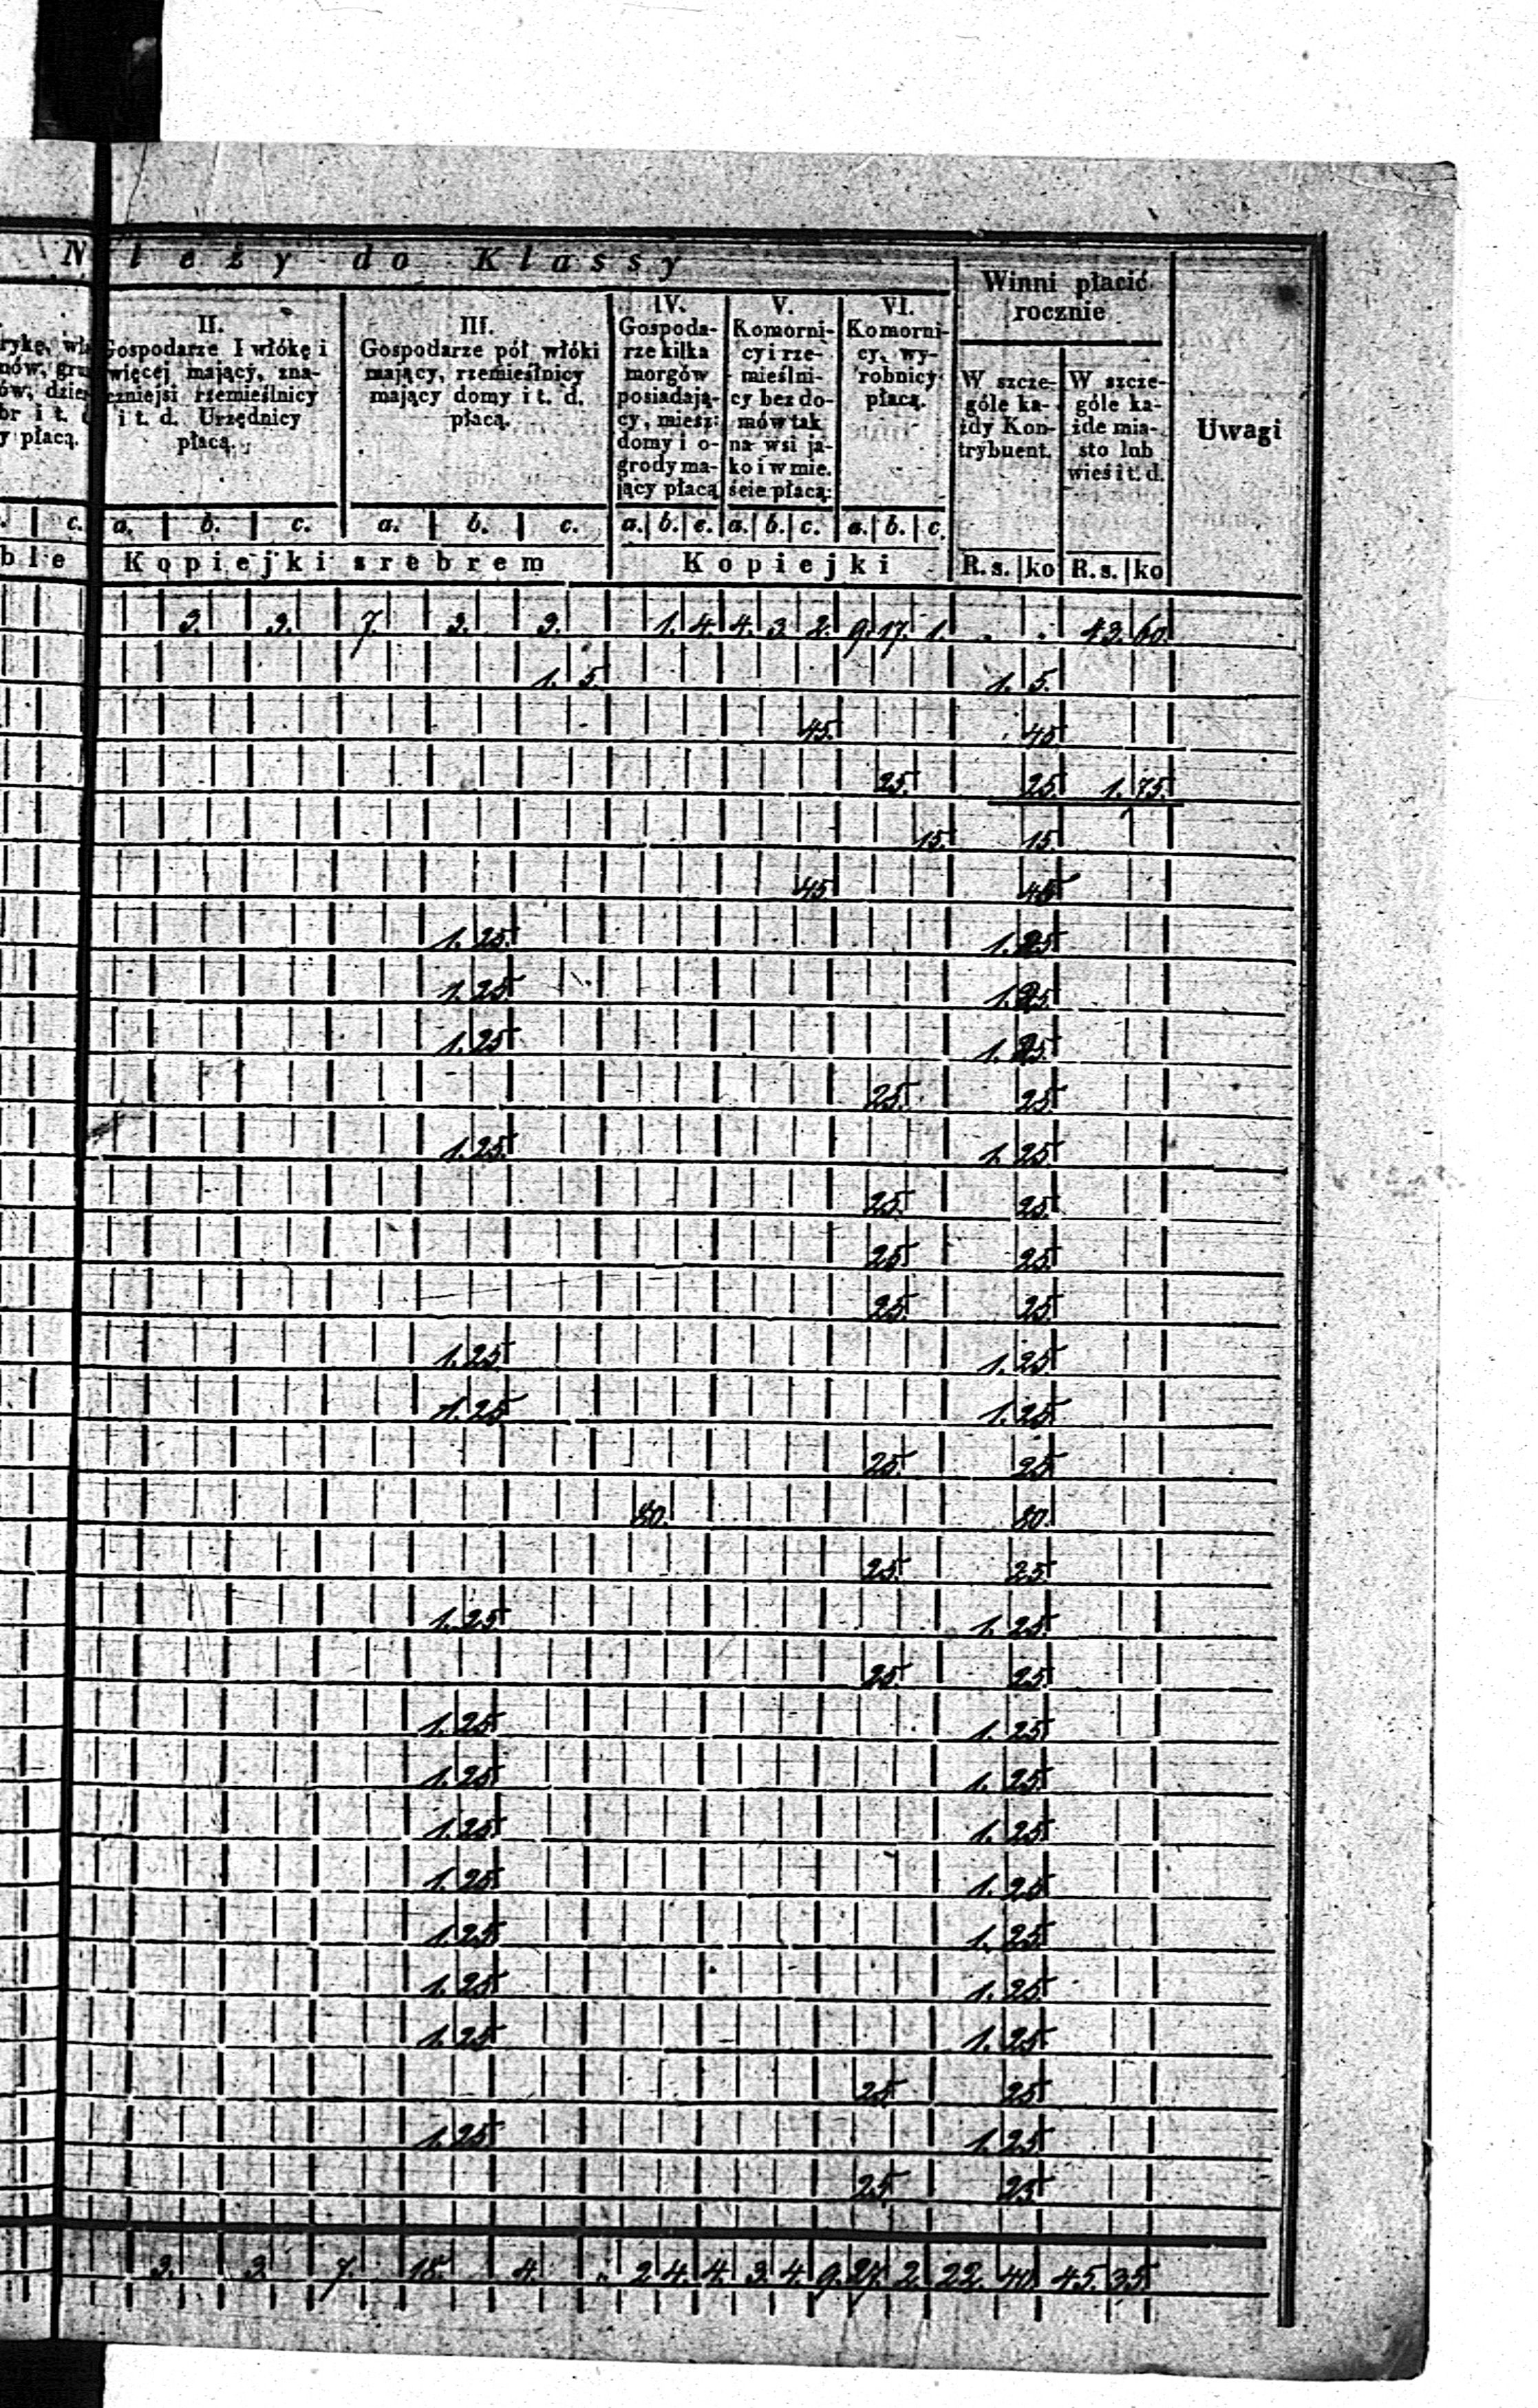 N leży do Klassy
Winni płacić rocznie
Uwagi
rykę, wła
nów, gru
ów, dzier
br i t. d
y płacą.
II.
Gospodarze I włókę i
więcej mający, zna-
czniejsi rzemieślnicy
i t. d. Urzędnicy
płacą.
III.
Gospodarze pół włóki
mający, rzemieślnicy
mający domy i t. d.
płacą.
IV.
Gospoda-
rze kilka
morgów
posiadają-
cy, miesz:
domy i o-
grody ma-
jący płacą
V.
Komorni-
cy i rze-
mieślni-
cy bez do-
mów tak
na wsi ja-
ko i w mie.
ście płacą:
VI.
Komorni-
cy, wy-
robnicy
płacą.
W szcze-
góle ka-
żdy Kon-
trybuent.
W szcze-
góle ka-
żde mia-
sto lub
wieś i t. d.
c. a. b. c. a. b. c. a. b. c. a. b. c. a. b. c.
ble Kopiejki srebrem Kopiejki R. s. ko R. s. ko
3. 3. 7. 3. 3. 1. 4. 4. 3. 2. 9. 17. 1. . . 43. 60.
1. 5. 1. 5.
45. 45.
25. 25. 1. 75.
15. 15.
45 45
1. 25. 1. 25
1. 25. 1. 25.
1. 25 1. 25.
25. 25.
1. 25. 1. 25
25. 25.
25 25.
25. 25.
1. 25. 1. 25.
1. 25. 1. 25.
25. 25
80. 80.
25. 25.
1. 25 1. 25.
25 25.
1. 25. 1. 25.
1. 25. 1. 25.
1. 25. 1. 25.
1. 25. 1. 25
1. 25. 1. 25.
1. 25. 1. 25.
1. 25. 1. 25.
25. 25.
1. 25. 1. 25.
25. 25.
3. 3. 7. 18. 4. . 2. 4. 4. 3. 4. 9. 27. 2. 22. 40. 45. 35.